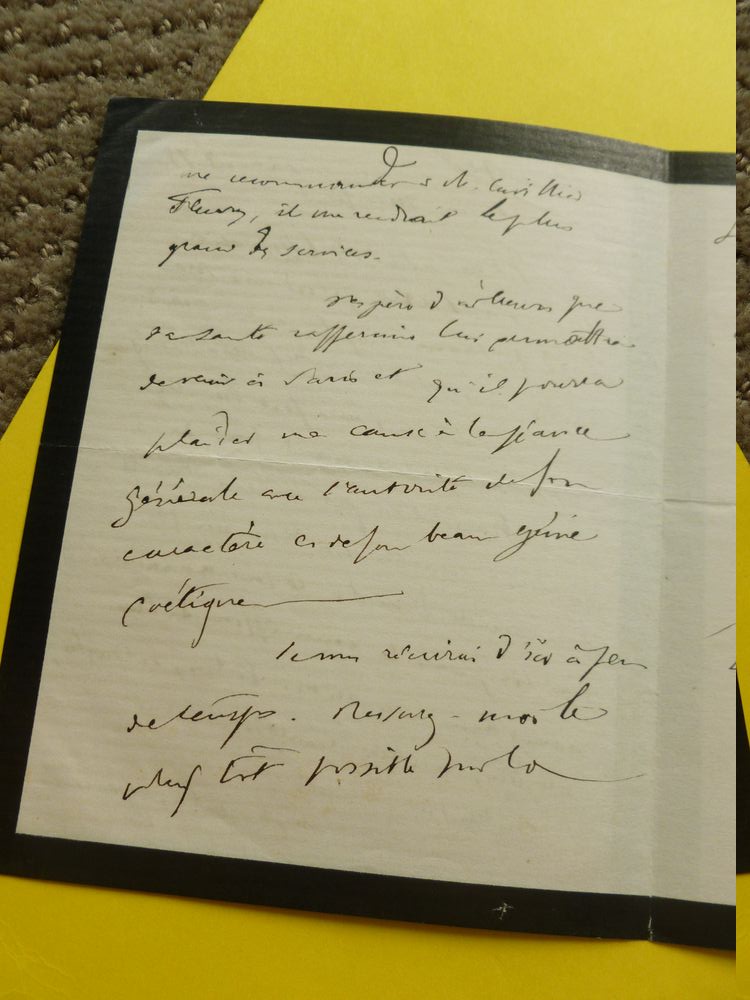 me recommander à M. Cuvillier
Fleury, il me rendrait le plus
grand des services.
J'espère d'ailleurs que
sa santé raffermie lui permettra
de venir à Paris et qu'il pourra
plaider ma cause à la séance
générale avec l'autorité de son
caractère et de son beau génie
poétique
Je vous récrirai d'ici à peu
de temps. Rassurez-moi le
plus tôt possible sur la